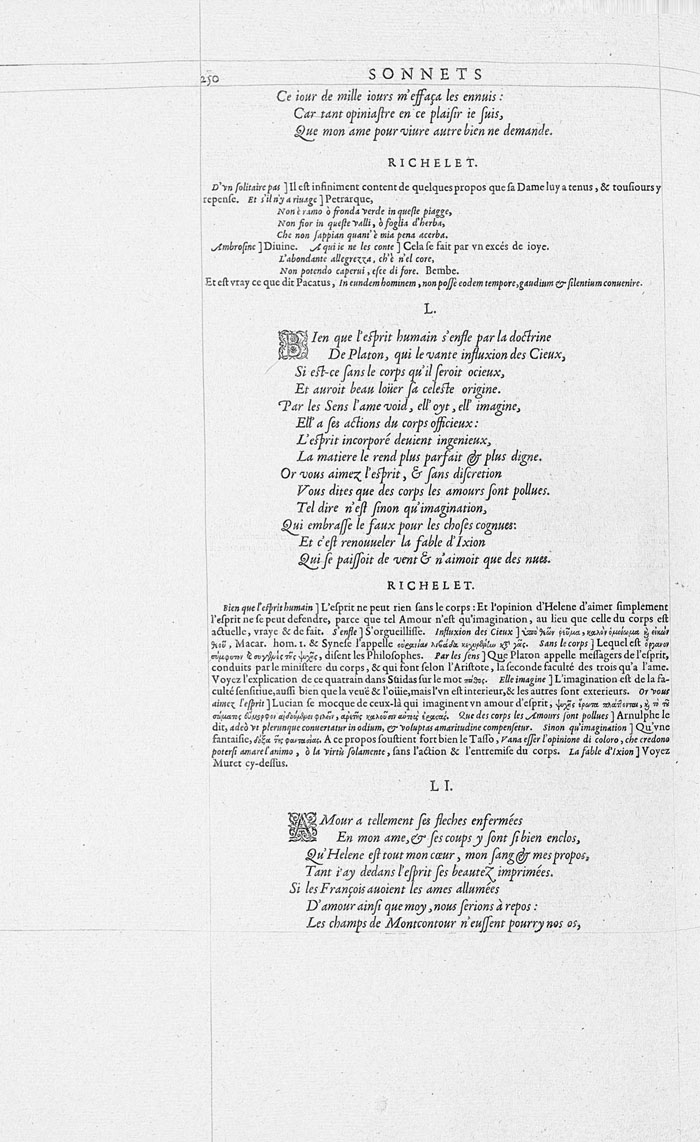 250
SONNETS
Ce iour de mille iours m'effaça les ennuis :
Car tant opiniastre en ce plaisir ie suis,
Que mon ame pour viure autre bien ne demande.
RICHELET.
D'vn solitaire pas ] Il est infiniment content de quelques propos que sa Dame luy a tenus, & tousiours y
repense. Et s'il n'y a riuage ] Petrarque,
Non è ramo ò fronda verde in queste piagge,
Non fior in queste valli, ò foglia d'herba,
Che non sappian quant'è mia pena acerba.
Ambrosine ] Diuine. A qui ie ne les conte ] Cela se fait par vn excés de ioye.
L'abondante allegrezza, ch'è n'el core,
Non potendo caperui, esce di fore. Bembe.
Et est vray ce que dit Pacatus, In eundem hominem, non posse eodem tempore, gaudium & silentium conuenire.
L.
BIen que l'esprit humain s'enfle par la doctrine
De Platon, qui le vante influxion des Cieux,
Si est-ce sans le corps qu'il seroit ocieux,
Et auroit beau loüer sa celeste origine.
Par les Sens l'ame void, ell'oyt, ell' imagine,
Ell'a ses actions du corps officieux :
L'esprit incorporé deuient ingenieux,
La matiere le rend plus parfait & plus digne.
Or vous aimez l'esprit, & sans discretion
Vous dites que des corps les amours sont pollues.
Tel dire n'est sinon qu'imagination,
Qui embrasse le faux pour les choses cognues:
Et c'est renouueler la fable d'Ixion
Qui se paissoit de vent & n'aimoit que des nues.
RICHELET.
Bien que l'esprit humain ] L'esprit ne peut rien sans le corps : Et l'opinion d'Helene d'aimer simplement
l'esprit ne se peut defendre, parce que tel Amour n'est qu'imagination, au lieu que celle du corps est
actuelle, vraye & de fait. S'enfle ] S'orgueillisse. Influxion des Cieux ]
Macar. hom. 1. & Synese l'appelle Sans le corps ] Lequel est
disent les Philosophes. Par les sens ] Que Platon appelle messagers de l'esprit,
conduits par le ministere du corps, & qui font selon l'Aristote, la seconde faculté des trois qu'a l'ame.
Voyez l'explication de ce quatrain dans Suidas sur le mot πάθος. Elle imagine ] L'imagination est de la fa-
culté sensitiue, aussi bien que la veuë & l'oüie, mais l'vn est interieur, & les autres sont exterieurs. Or vous
aimez l'esprit ] Lucian se mocque de ceux-là qui imaginent vn amour d'esprit,
Que des corps les Amours sont pollues ] Arnulphe le
dit, adeò vt plerunque conuertatur in odium, & voluptas amaritudine compensetur. Sinon qu'imagination ] Qu'vne
fantaisie, A ce propos soustient fort bien le Tasso, Vana esser l'opinione di coloro, che credono
potersi amare l'animo, ò la virtù solamente, sans l'action & l'entremise du corps. La fable d'Ixion ] Voyez
Muret cy-dessus.
LI.
AMour a tellement ses fleches enfermées
En mon ame, & ses coups y sont si bien enclos,
Qu'Helene est tout mon cœur, mon sang & mes propos,
Tant i'ay dedans l'esprit ses beautez imprimées.
Si les François auoient les ames allumées
D'amour ainsi que moy, nous serions à repos :
Les champs de Montcontour n'eussent pourry nos os,